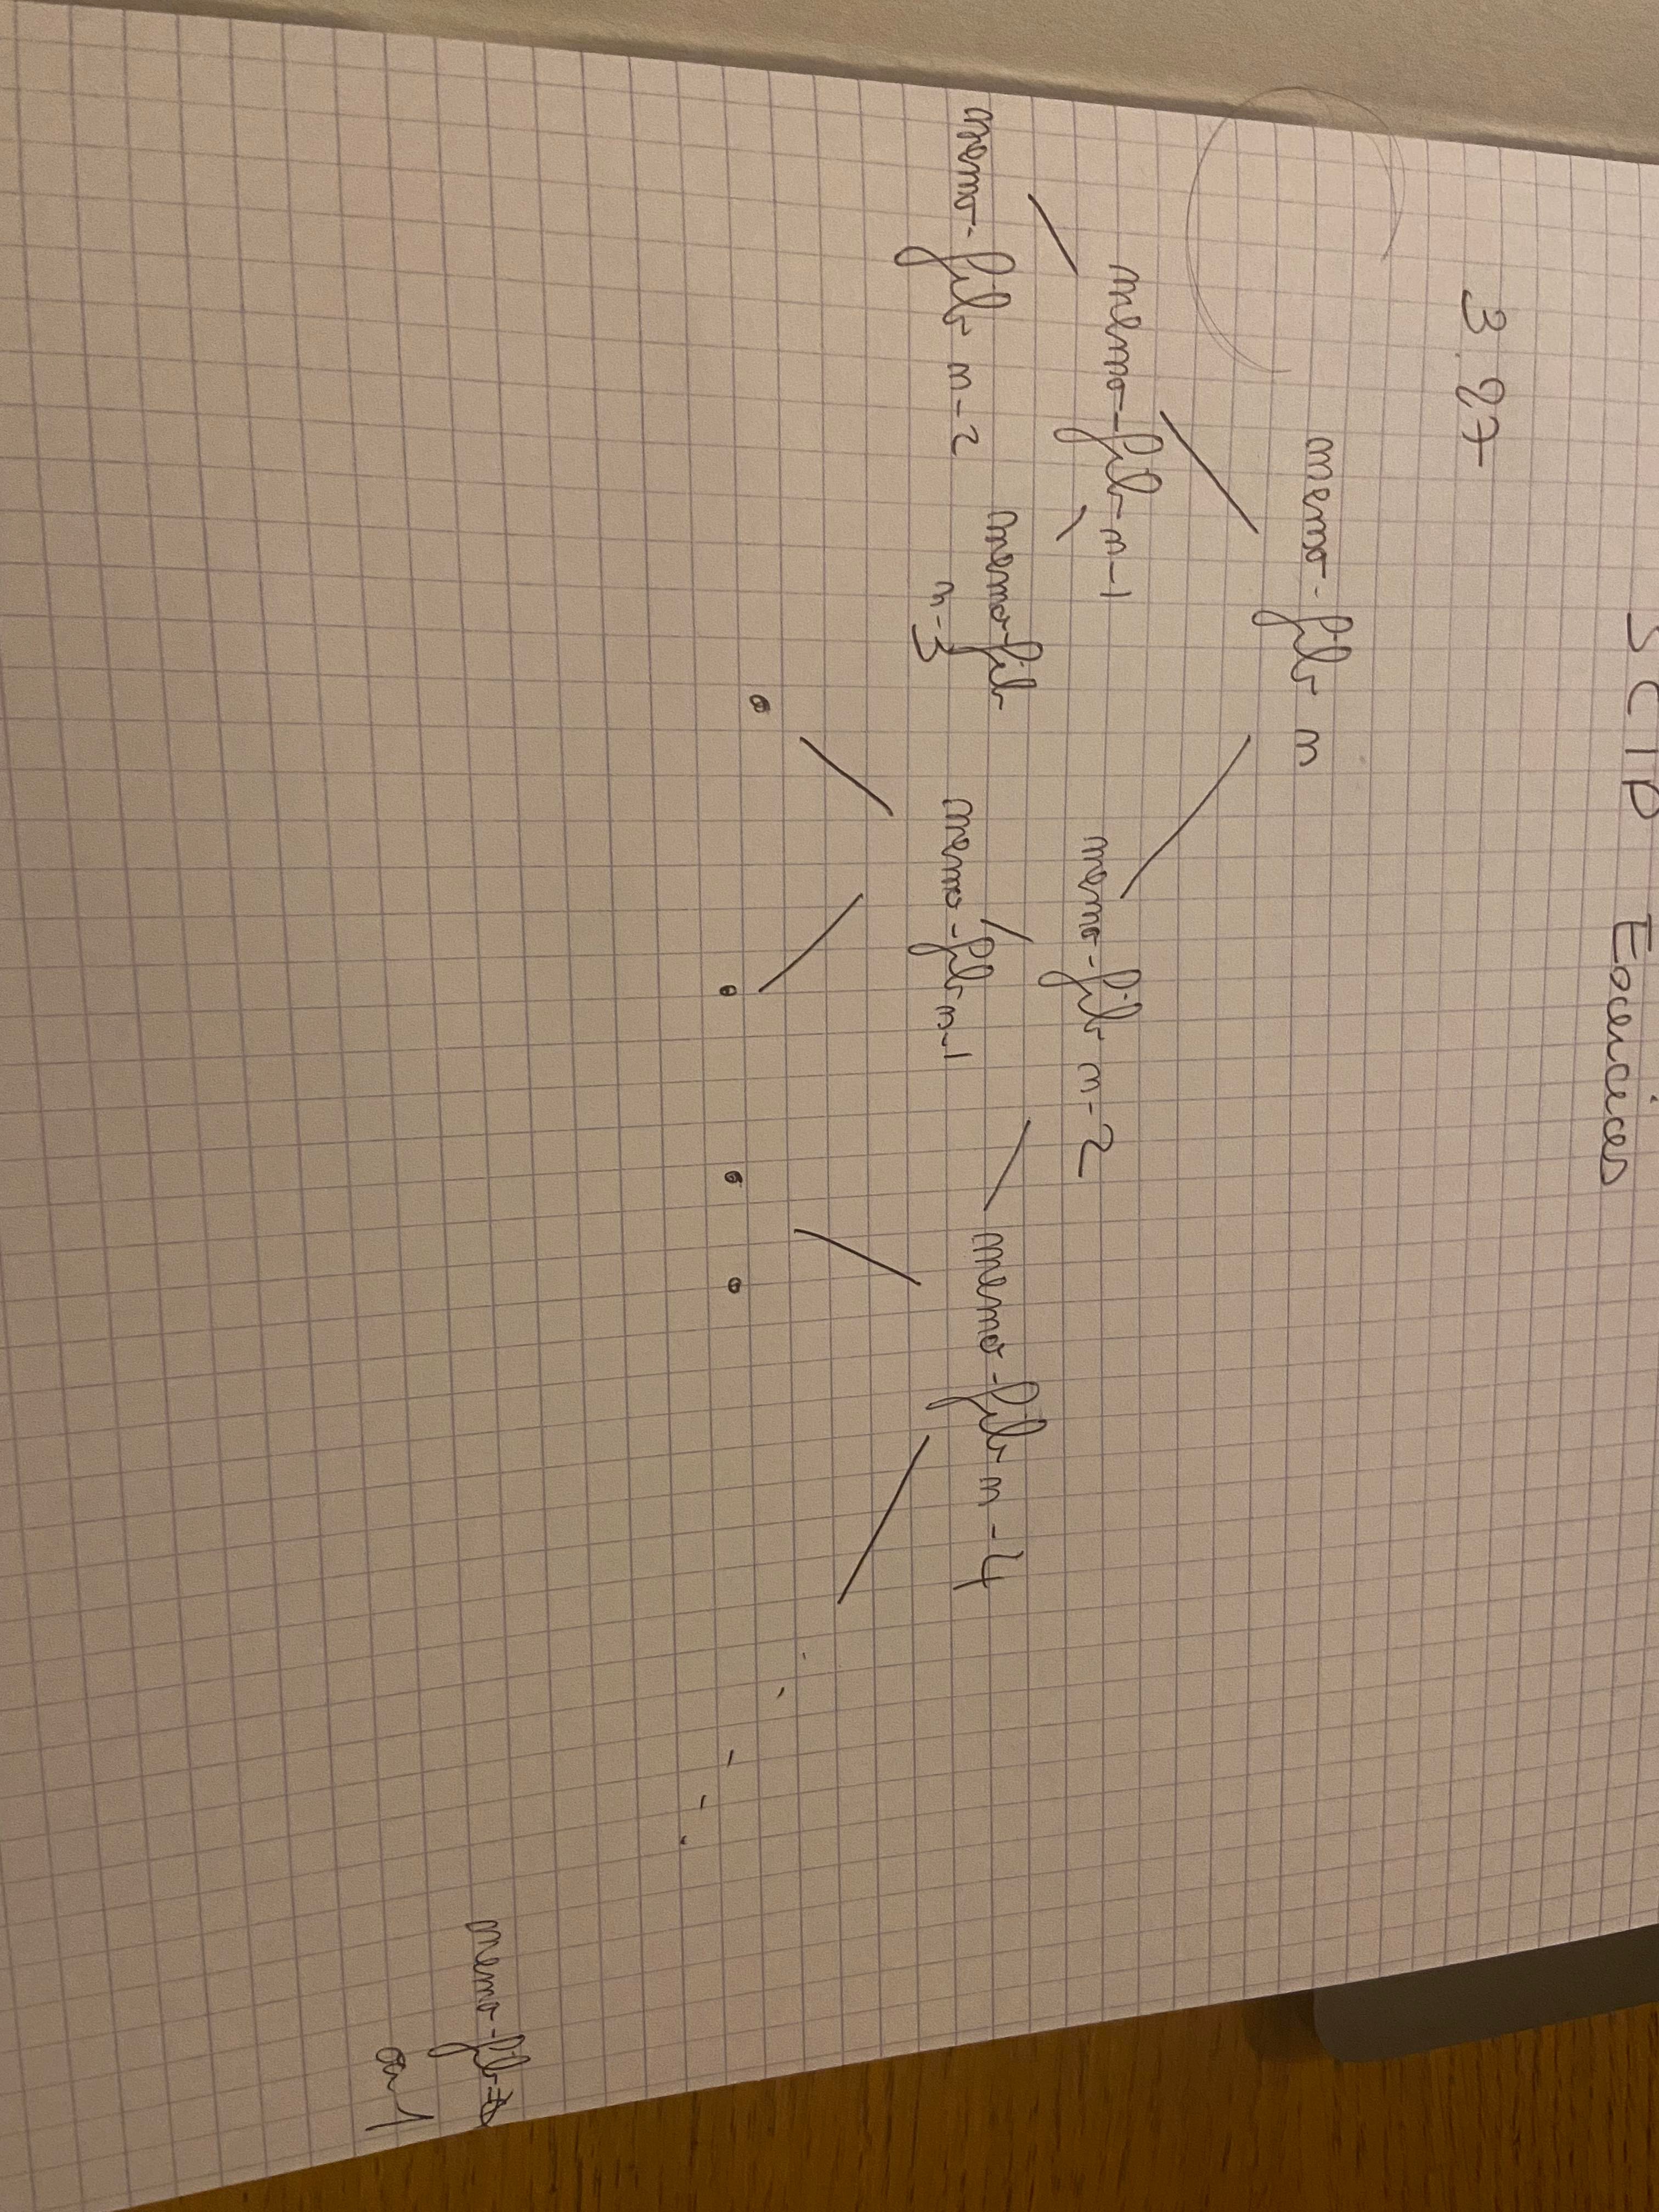 SCIP Exercices
3.27
memo-fib n
memo-fib n-1
memo-fib n-2
memo-fib n-2
memo-fib
n-3
memo-fib n-1
memo-fib n-4
memo-fib
ou 1